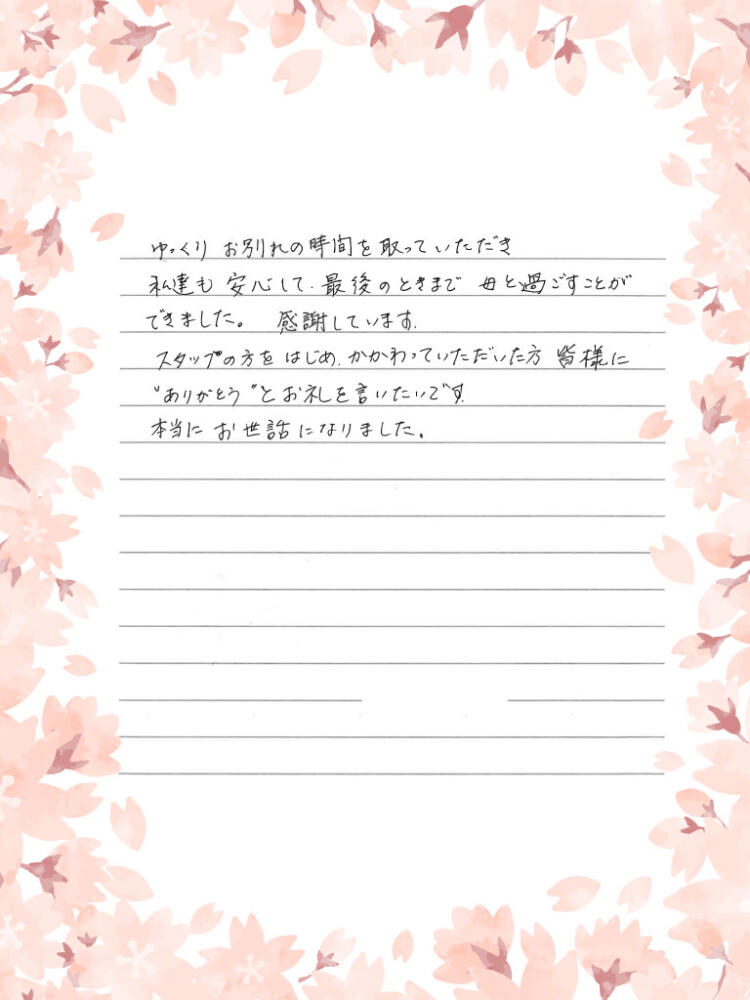 ゆっくり お別れの時間を取っていただき
私達も 安心して、最後のときまで 母と過ごすことが
できました。 感謝しています。
スタップの方を はじめ、かかわっていただいた方 皆様に
"ありがとう"とお礼を言いたいです。
本当に お世話になりました。